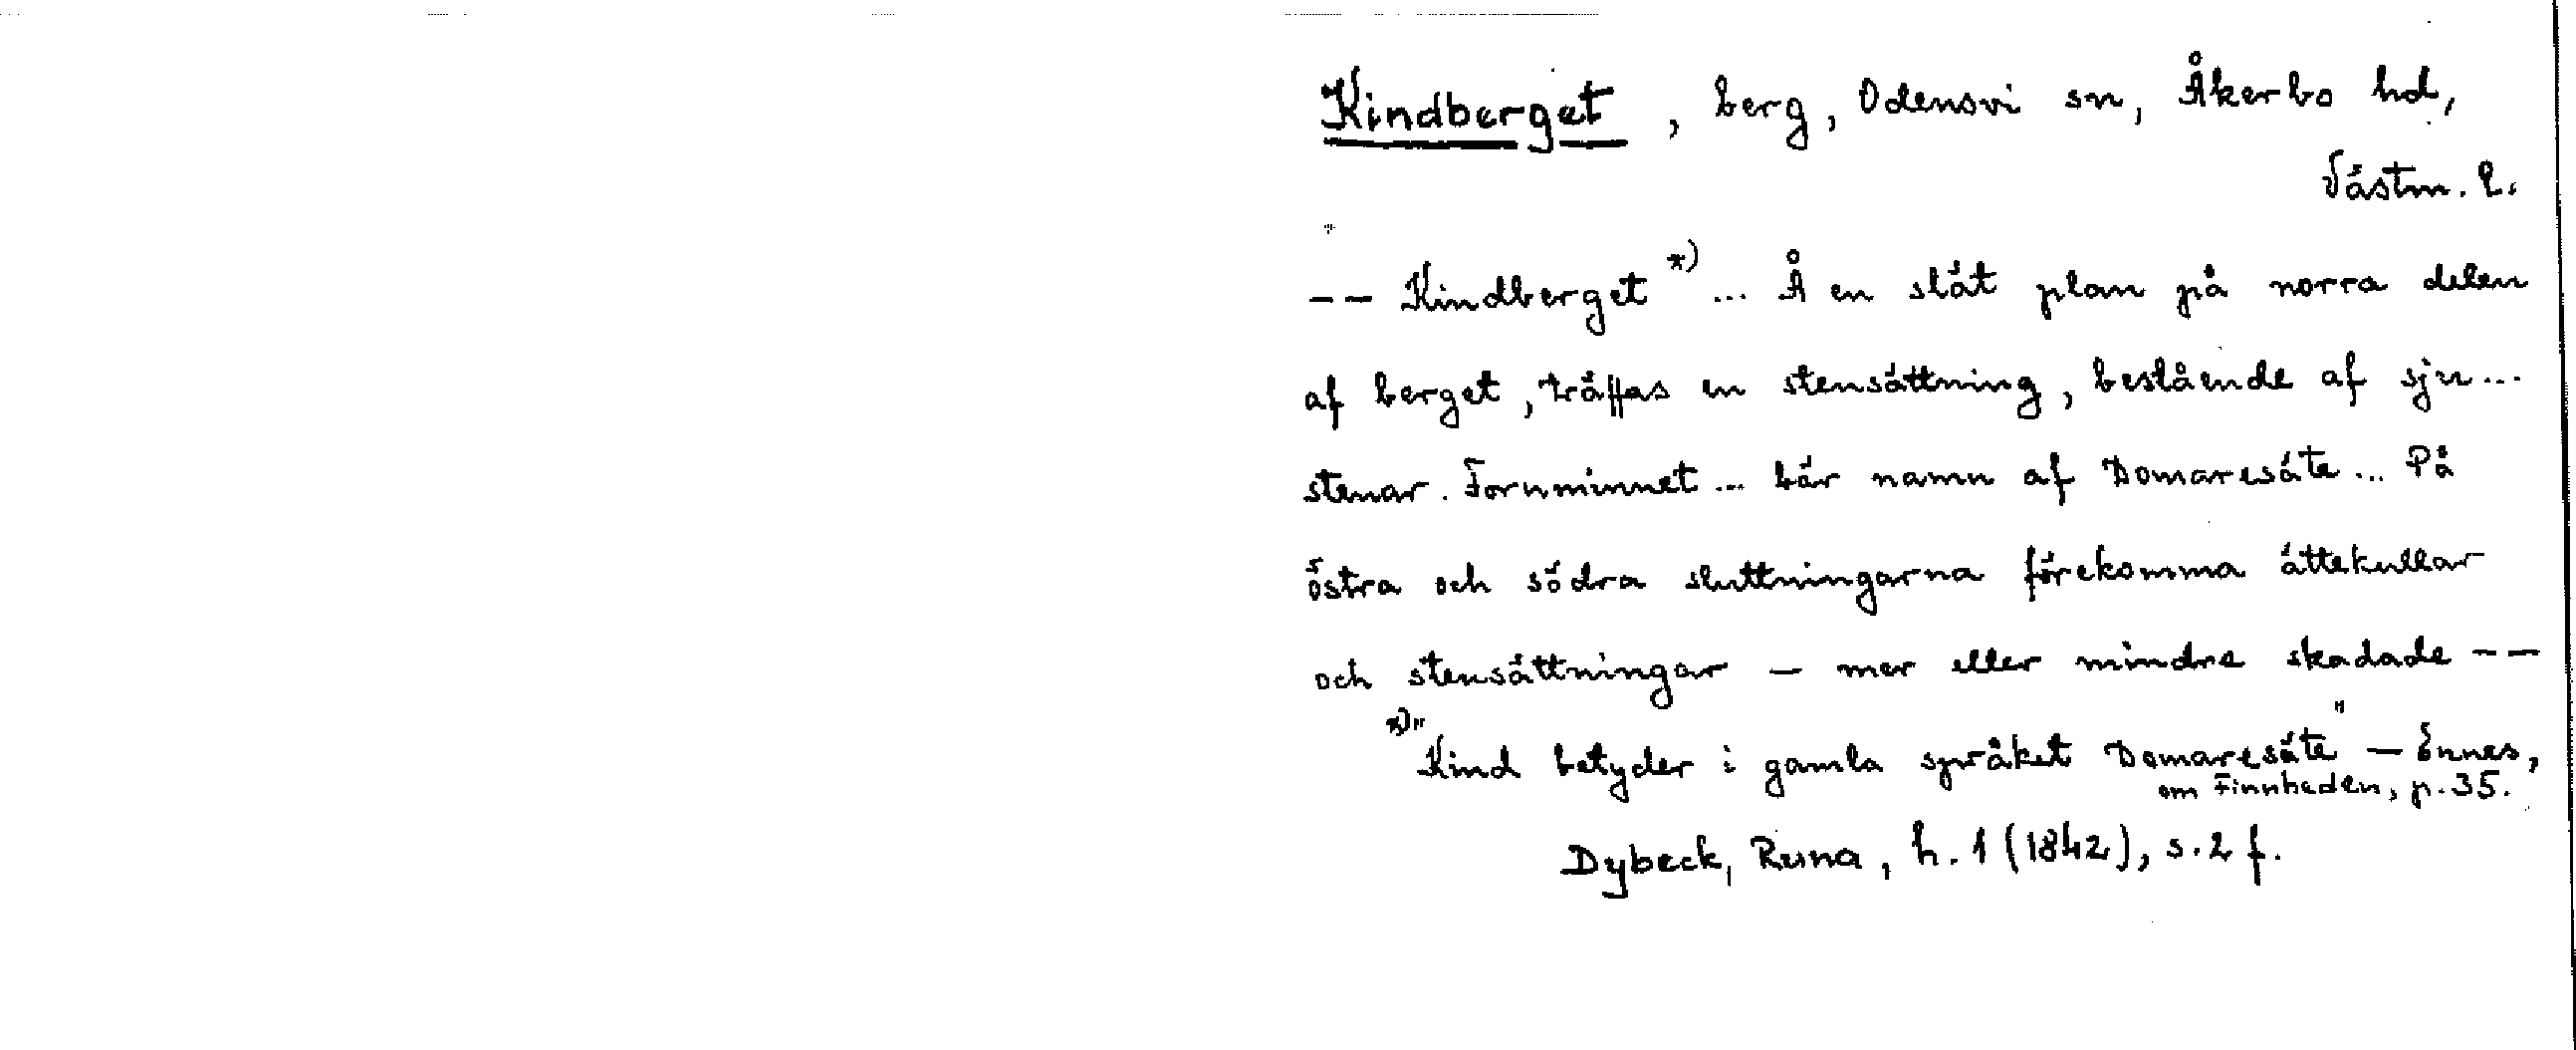 Kindberget, berg, Odensvi sn, Åkerbo hd,
Västm. l.
-- Kindberget *) ... Å en slät plan på norra delen
af berget, träffas en stensättning, bestående af sju...
stenar. Fornminnet ... bär namn af Domaresäte ... På
östra och södra sluttningarna förekomma ättekullar
och stensättningar – mer eller mindre skadade --
*) "Kind betyder i gamla språket Domaresäte" – Ennes,
om Finnheden, p. 35.
Dybeck, Runa, h. 1 (1842), s. 2 f.